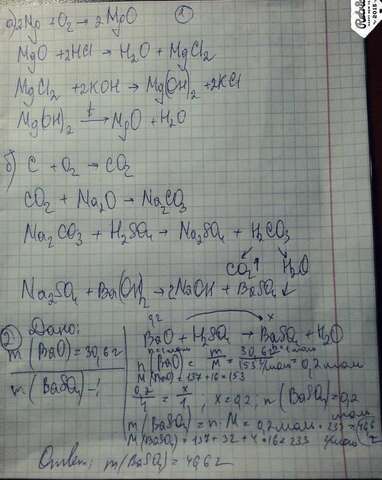 а) 2Mg + O₂ → 2MgO
MgO + 2HCl → H₂O + MgCl₂
MgCl₂ + 2KOH → Mg(OH)₂ + 2KCl
Mg(OH)₂ t→ MgO + H₂O
б) C + O₂ → CO₂
CO₂ + Na₂O → Na₂CO₃
Na₂CO₃ + H₂SO₄ → Na₂SO₄ + H₂CO₃
CO₂↑ H₂O
Na₂SO₄ + Ba(OH)₂ → 2NaOH + BaSO₄↓
2) Дано:
m(BaO) = 30,6 г
m(BaSO₄) -
x
BaO + H₂SO₄ → BaSO₄ + H₂O
n(BaO) = m/M = 30,6 г / 153 г/моль = 0,2 моль
M(BaO) = 137 + 16 = 153
0,2/1 = x/1 ; x = 0,2; n(BaSO₄) = 0,2 моль
m(BaSO₄) = n · M = 0,2 моль · 233 = 46,6 г
M(BaSO₄) = 137 + 32 + 4 · 16 = 233 г/моль
Ответ: m(BaSO₄) = 46,6 г